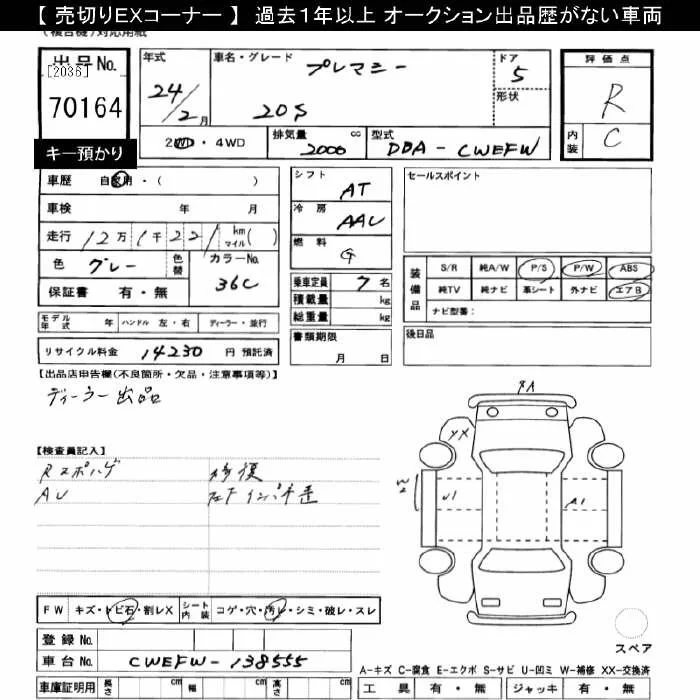 【 売切りEXコーナー 】 過去1年以上 オークション出品歴がない車両
(複合機)対応用紙
出品No. [2036] 70164
キー預かり
年式 24/2月
車名・グレード プレマシー 20S
ドア 5
形状
2WD・4WD
排気量 2000 cc
型式 DBA-CWEFW
評価点 R
内装 C
車歴 自家用・( )
車検 年 月
走行 12万1千221 km マイル( )
色 グレー 色替 カラーNo. 36C
保証書 有・無
シフト AT
冷房 AAC
燃料 G
乗車定員 7名
積載量 kg
総重量 kg
書類期限 月 日
セールスポイント
装備品 S/R 純A/W P/S P/W ABS
純TV 純ナビ 革シート 外ナビ エアB
ナビ型番:
モデル年式 年 ハンドル 左・右 ディーラー・並行
後日品
リサイクル料金 14230 円 預託済
【出品店申告欄(不良箇所・欠品・注意事項等)】
ディーラー出品
【検査員記入】
修復
XX
W2
U1
A1
FW キズ・トビ石・割レX シート内装 コゲ・穴・汚レ・シミ・破レ・スレ
登録No.
車台No. CWEFW-138555
スペア
車庫証明用 長さ cm 幅 cm 高さ cm
A-キズ C-腐食 E-エクボ S-サビ U-凹ミ W-補修 XX-交換済
工具 有・無 ジャッキ 有・無